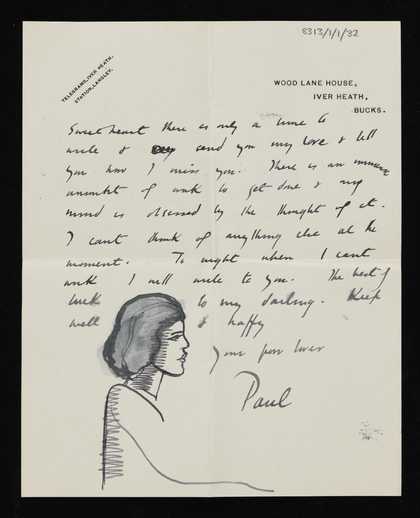 8313/1/1/32
TELEGRAMS, IVER HEATH.
STATION, LANGLEY.
WOOD LANE HOUSE,
IVER HEATH,
BUCKS.
Sweetheart there is only a time to
write & send you my love & tell
you how I miss you. There is an immense
amount of work to get done & my
mind is obsessed by the thought of it.
I cant think of anything else at the
moment. To night when I cant
work I will write to you. The best of
luck to my darling. Keep
well & happy
Your poor lover
Paul